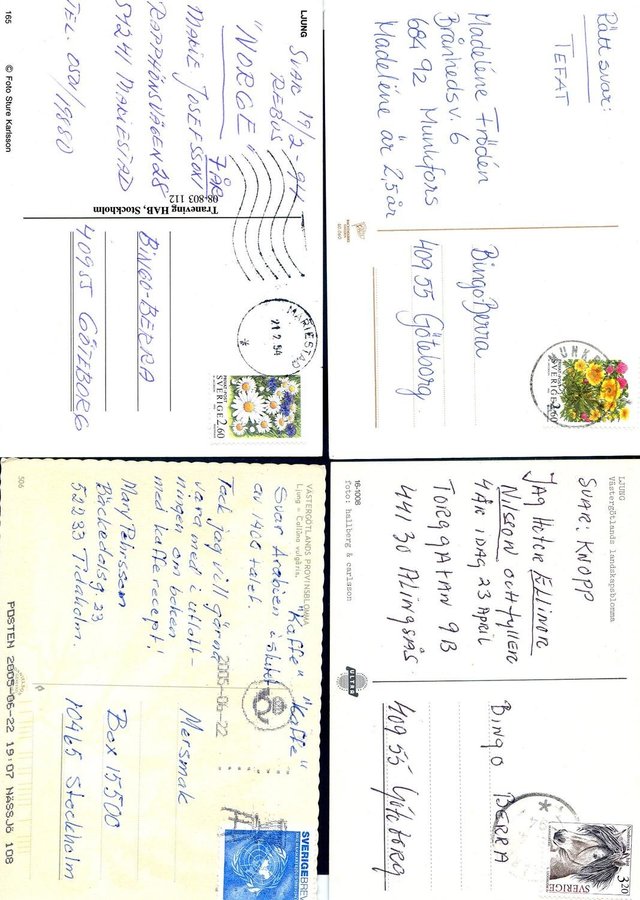 LJUNG
165
© Foto Sture Karlsson
SVAR 19/2-94
REBUS
"NORGE"
MARIE JOSEFSSON 7 ÅR
RAPPHÖNSVÄGEN 28
54241 MARIESTAD
TEL. 0501/19880
08-803 112
Traneving HAB, Stockholm
BINGO-BERRA
40955 GÖTEBORG
MARIESTAD
21 2 94
SVERIGE 2.60
Rätt svar:
TEFAT
Madeléne Frödén
Brånheds v. 6
684 92 Munkfors
Madeléne är 2,5 år
BingoBerra
409 55 Göteborg.
SVERIGE
VÄSTERGÖTLANDS PROVINSBLOMMA
Ljung = Calluna vulgaris.
506
"Kaffe" "kaffe"
Svar Arabien i slutet
av 1400 talet.
Tack jag vill gärna
vara med i utlott-
ningen om boken
med kafferecept!
Mary Pehrsson
Bäckedalsg. 23
52233 Tidaholm.
2005-06-22
Mersmak
Box 15500
10465 Stockholm
SVERIGE BREV
POSTEN 2005-06-22 19:07 NÄSSJÖ 108
LJUNG
Västergötlands landskapsblomma
16-1008
foto: hallberg & carlsson
SVAR: KNOPP
JAG HETER ELLINOR
NILSSON OCH FYLLER
4 ÅR IDAG 23 APRIL
TORGGATAN 9B
441 30 ALINGSÅS
ULTRA
BINGO BERRA
409 55 Göteborg
SVERIGE
3.20